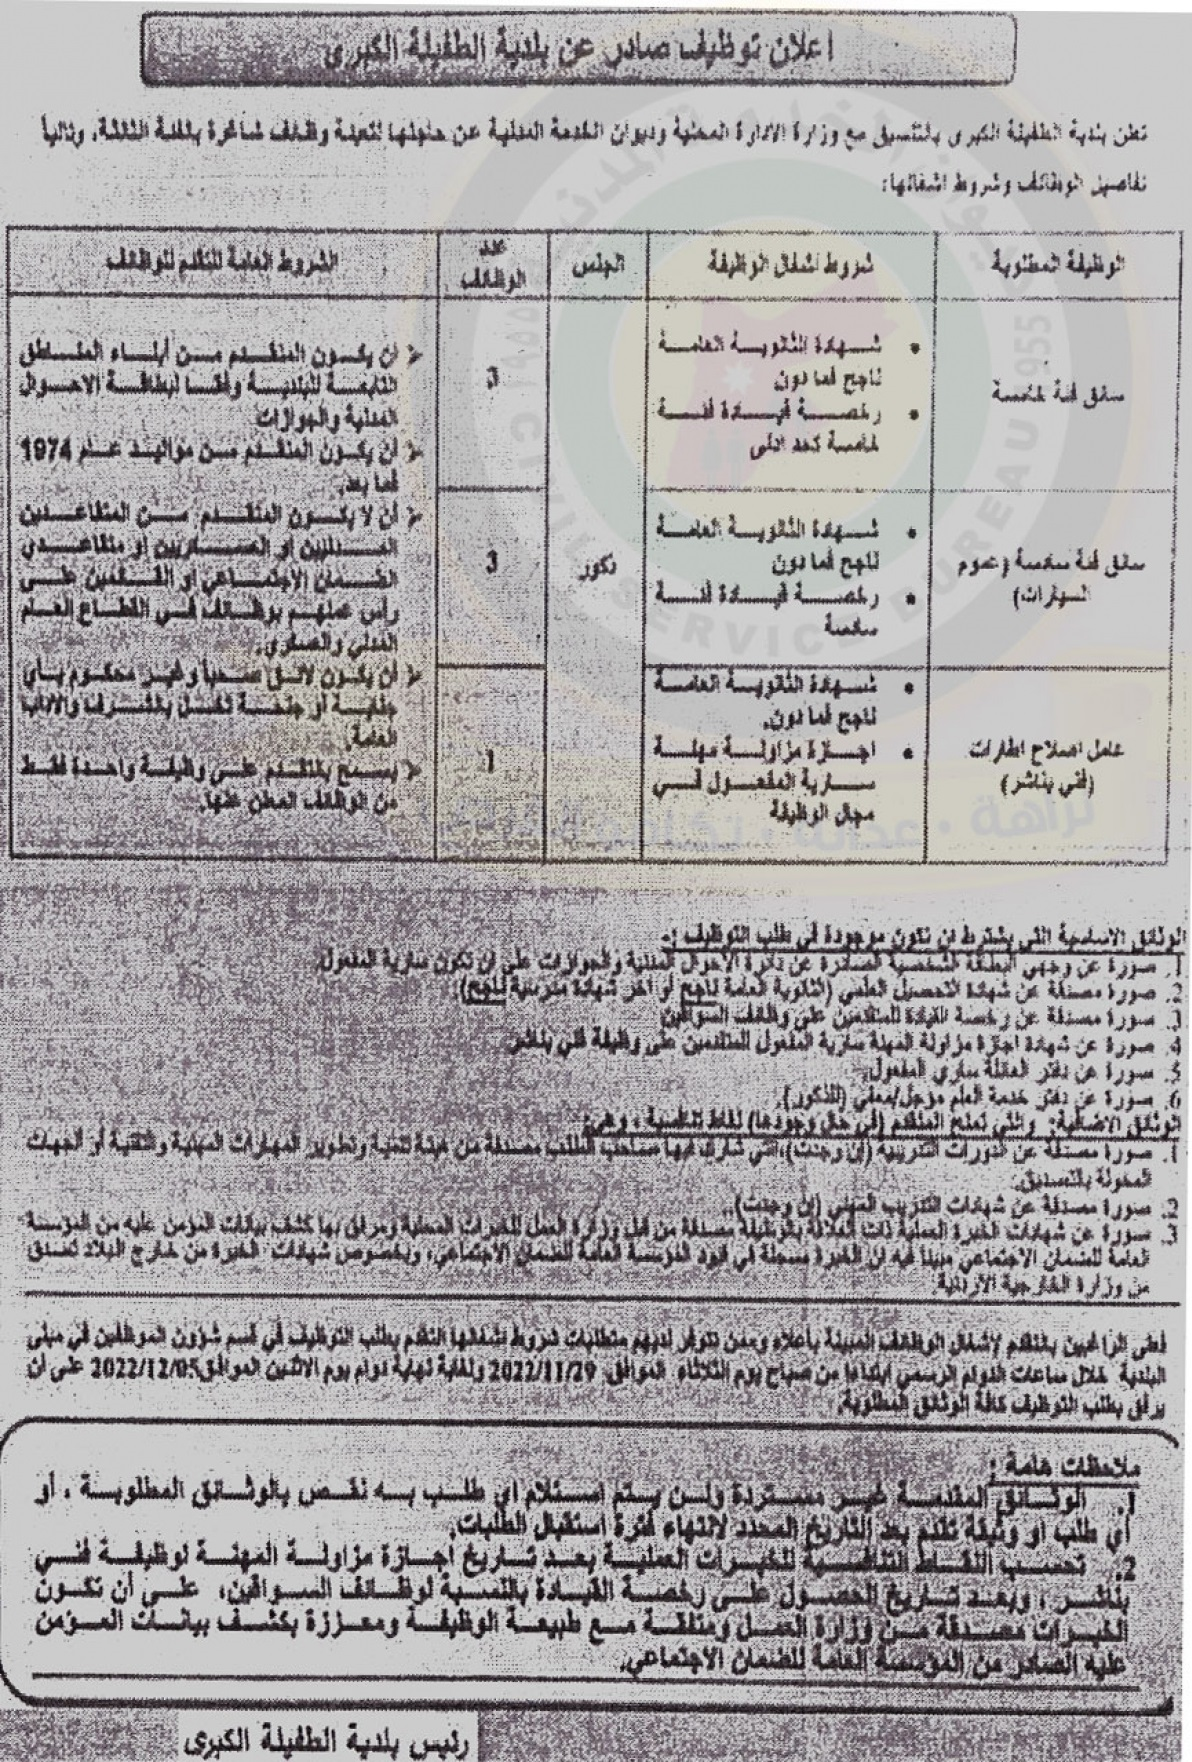 إعلان توظيف صادر عن بلدية الطفيلة الكبرى
تعلن بلدية الطفيلة الكبرى بالتنسيق مع وزارة الادارة المحلية وديوان الخدمة المدنية عن حاجتها لتعبئة وظائف شاغرة بالفئة الثالثة، وتالياً
تفاصيل الوظائف وشروط اشغالها:
الوظيفة المطلوبة
شروط اشغال الوظيفة
الجنس
عدد
الوظائف
الشروط العامة للتقدم للوظائف
سائق فئة خامسة
• شهادة الثانوية العامة
ناجح فما دون
• رخصة قيادة فئة
خامسة كحد ادنى
3
سائق فئة سادسة (عموم
السيارات)
• شهادة الثانوية العامة
ناجح فما دون
• رخصة قيادة فئة
سادسة
ذكور
3
عامل اصلاح اطارات
(فني بناشر)
• شهادة الثانوية العامة
ناجح فما دون.
• اجازة مزاولة مهنة
سارية المفعول في
مجال الوظيفة
1
أن يكون المتقدم من أبناء المناطق
التابعة للبلدية وفقا لبطاقة الاحوال
المدنية والجوازات
أن يكون المتقدم من مواليد عام 1974
فما بعد.
أن لا يكون المتقدم من المتقاعدين
المدنيين أو العسكريين أو متقاعدي
الضمان الاجتماعي أو القائمين على
رأس عملهم بوظائف في القطاع العام
المدني والعسكري.
أن يكون لائق صحياً وغير محكوم بأي
جناية أو جنحة تخل بالشرف والآداب
العامة.
يسمح بالتقدم على وظيفة واحدة فقط
من الوظائف المعلن عنها.
CIVIL SERVICE BUREAU 1955
نزاهة • عدالة •
الوثائق الاساسية التي يشترط ان تكون موجودة في طلب التوظيف :-
1. صورة عن وجهي البطاقة الشخصية الصادرة عن دائرة الأحوال المدنية والجوازات على ان تكون سارية المفعول.
2. صورة مصدقة عن شهادة التحصيل العلمي (الثانوية العامة ناجح أو اخر شهادة مدرسية ناجح).
3. صورة مصدقة عن رخصة القيادة للمتقدمين على وظائف السواقين
4. صورة عن شهادة اجازة مزاولة المهنة سارية المفعول للمتقدمين على وظيفة فني بناشر.
5. صورة عن دفتر العائلة ساري المفعول.
6. صورة عن دفتر خدمة العلم مؤجل/معفي (للذكور).
الوثائق الاضافية: والتي تمنح المتقدم (في حال وجودها) نقاط تنافسية ، وهي:
1. صورة مصدقة عن الدورات التدريبية (إن وجدت)،التي شارك فيها صاحب الطلب مصدقة من هيئة تنمية وتطوير المهارات المهنية والتقنية أو الجهات
المخولة بالتصديق.
2. صورة مصدقة عن شهادات التدريب المهني (إن وجدت)..
3. صورة عن شهادات الخبرة العملية ذات العلاقة بالوظيفة مصدقة من قبل وزارة العمل للخبرات المحلية ومرفق بها كشف بيانات المؤمن عليه من المؤسسة
العامة للضمان الاجتماعي مبيناً فيه ان الخبرة مسجلة في قيود المؤسسة العامة للضمان الاجتماعي، وبخصوص شهادات الخبرة من خارج البلاد تصدق
من وزارة الخارجية الاردنية.
فعلى الراغبين بالتقدم لإشغال الوظائف المبينة بأعلاه وممن تتوفر لديهم متطلبات شروط اشغالها التقدم بطلب التوظيف في قسم شؤون الموظفين في مبنى
البلدية خلال ساعات الدوام الرسمي ابتداءا من صباح يوم الثلاثاء الموافق 2022/11/29 ولغاية نهاية دوام يوم الاثنين الموافق2022/12/05 على ان
يرفق بطلب التوظيف كافة الوثائق المطلوبة.
ملاحظات هامة :
1. الوثائق المقدمة غير مستردة ولن يتم استلام اي طلب به نقص بالوثائق المطلوبة ، أو
أي طلب او وثيقة تقدم بعد التاريخ المحدد لانتهاء فترة استقبال الطلبات.
2. تحسب النقاط التنافسية للخبرات العملية بعد تاريخ اجازة مزاولة المهنة لوظيفة فني
بناشر ، وبعد تاريخ الحصول على رخصة القيادة بالنسبة لوظائف السواقين، على أن تكون
الخبرات مصدقة من وزارة العمل ومتفقة مع طبيعة الوظيفة ومعززة بكشف بيانات المؤمن
عليه الصادر من المؤسسة العامة للضمان الاجتماعي.
رئيس بلدية الطفيلة الكبرى